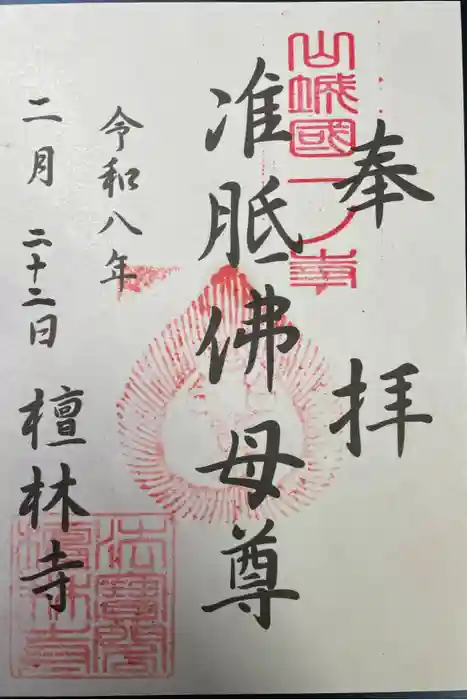 奉拝
山城國一ノ寺
准胝佛母尊
令和八年
二月二十二日
檀林寺
法寶閣
檀林寺